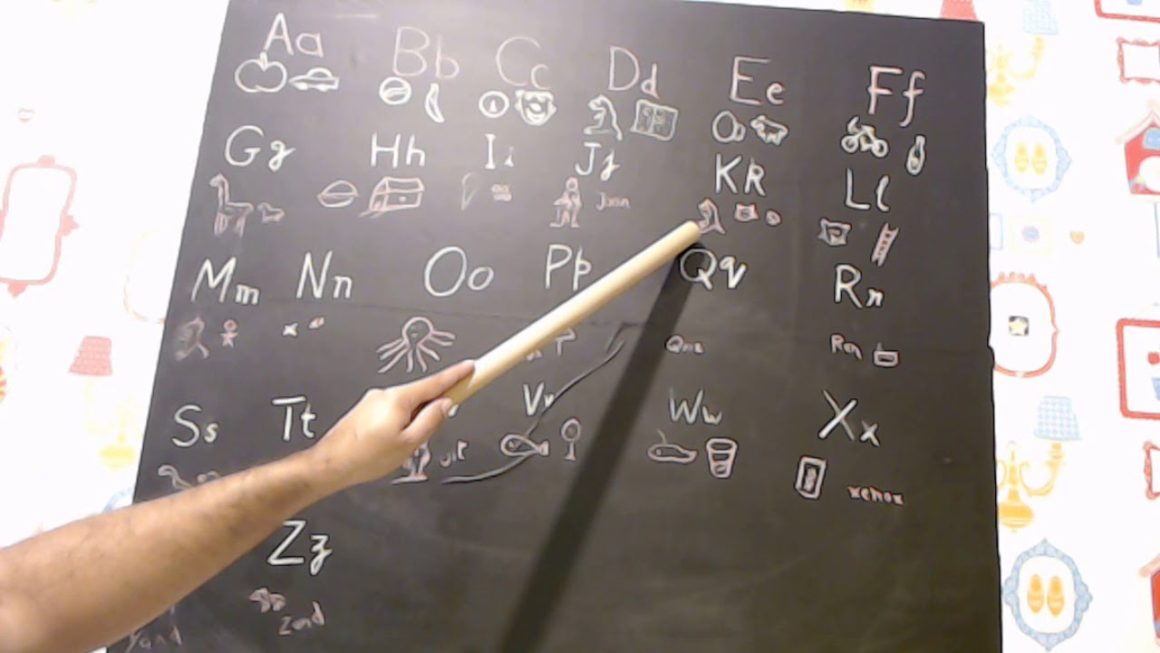 Aa Bb Cc Dd Ee Ff
Gg Hh Ii Jj KK Ll
Mm Nn Oo Pp Qq Rr
Ss Tt Vv Ww Xx
xenox
Zz
Yand
Zand